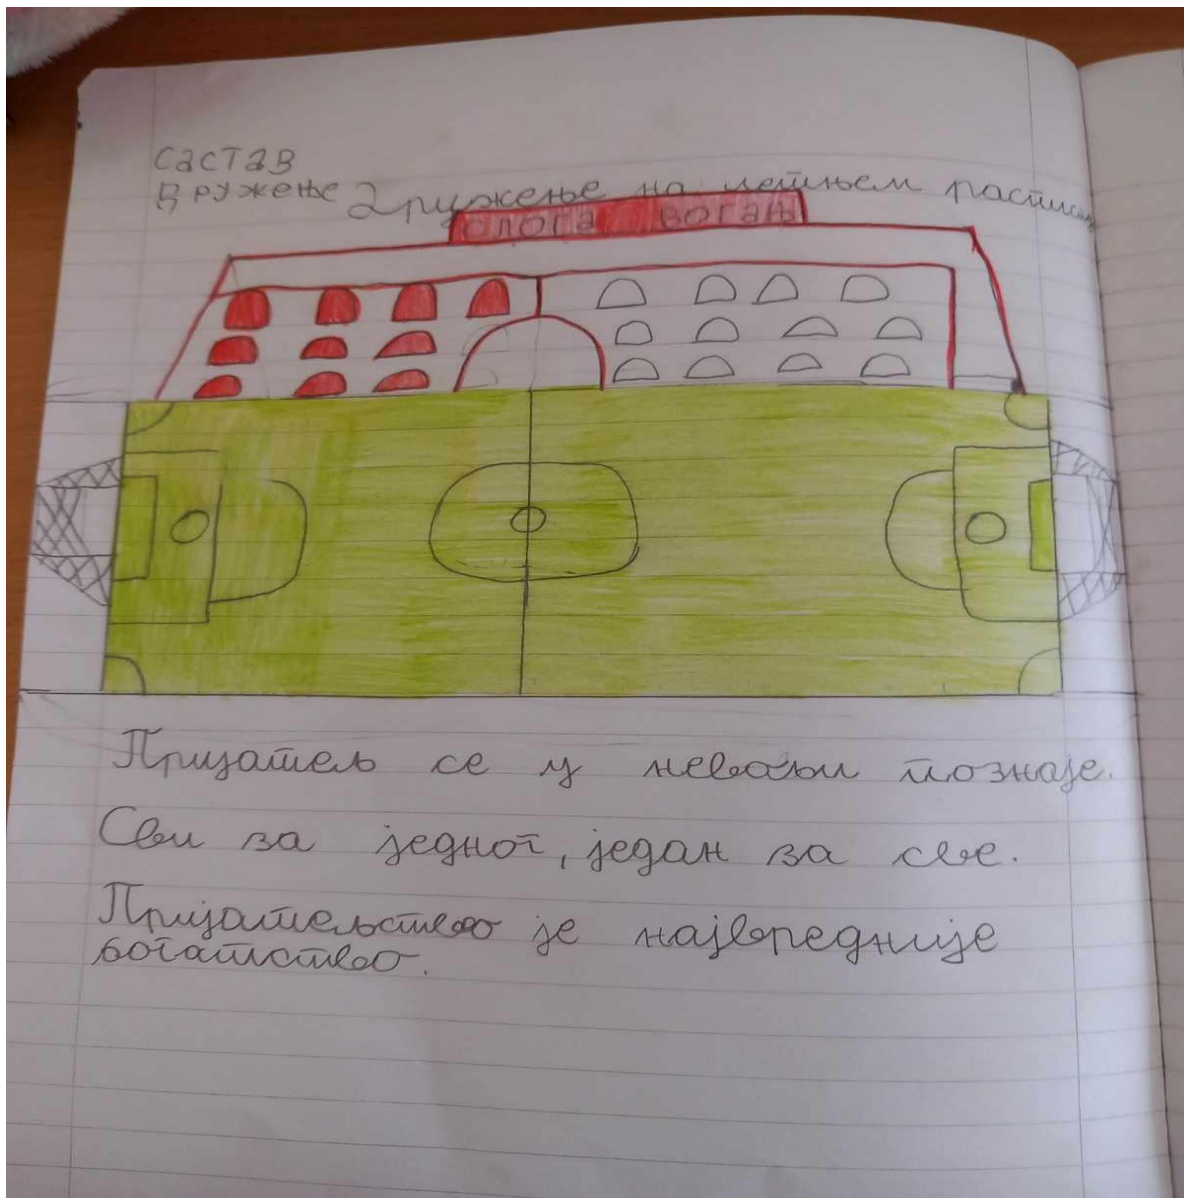 састав
Дружење Дружење на летњем распусту
слога воган
Пријатељ се у невољи познаје.
Сви за једног, један за све.
Пријатељство је највредније
богатство.